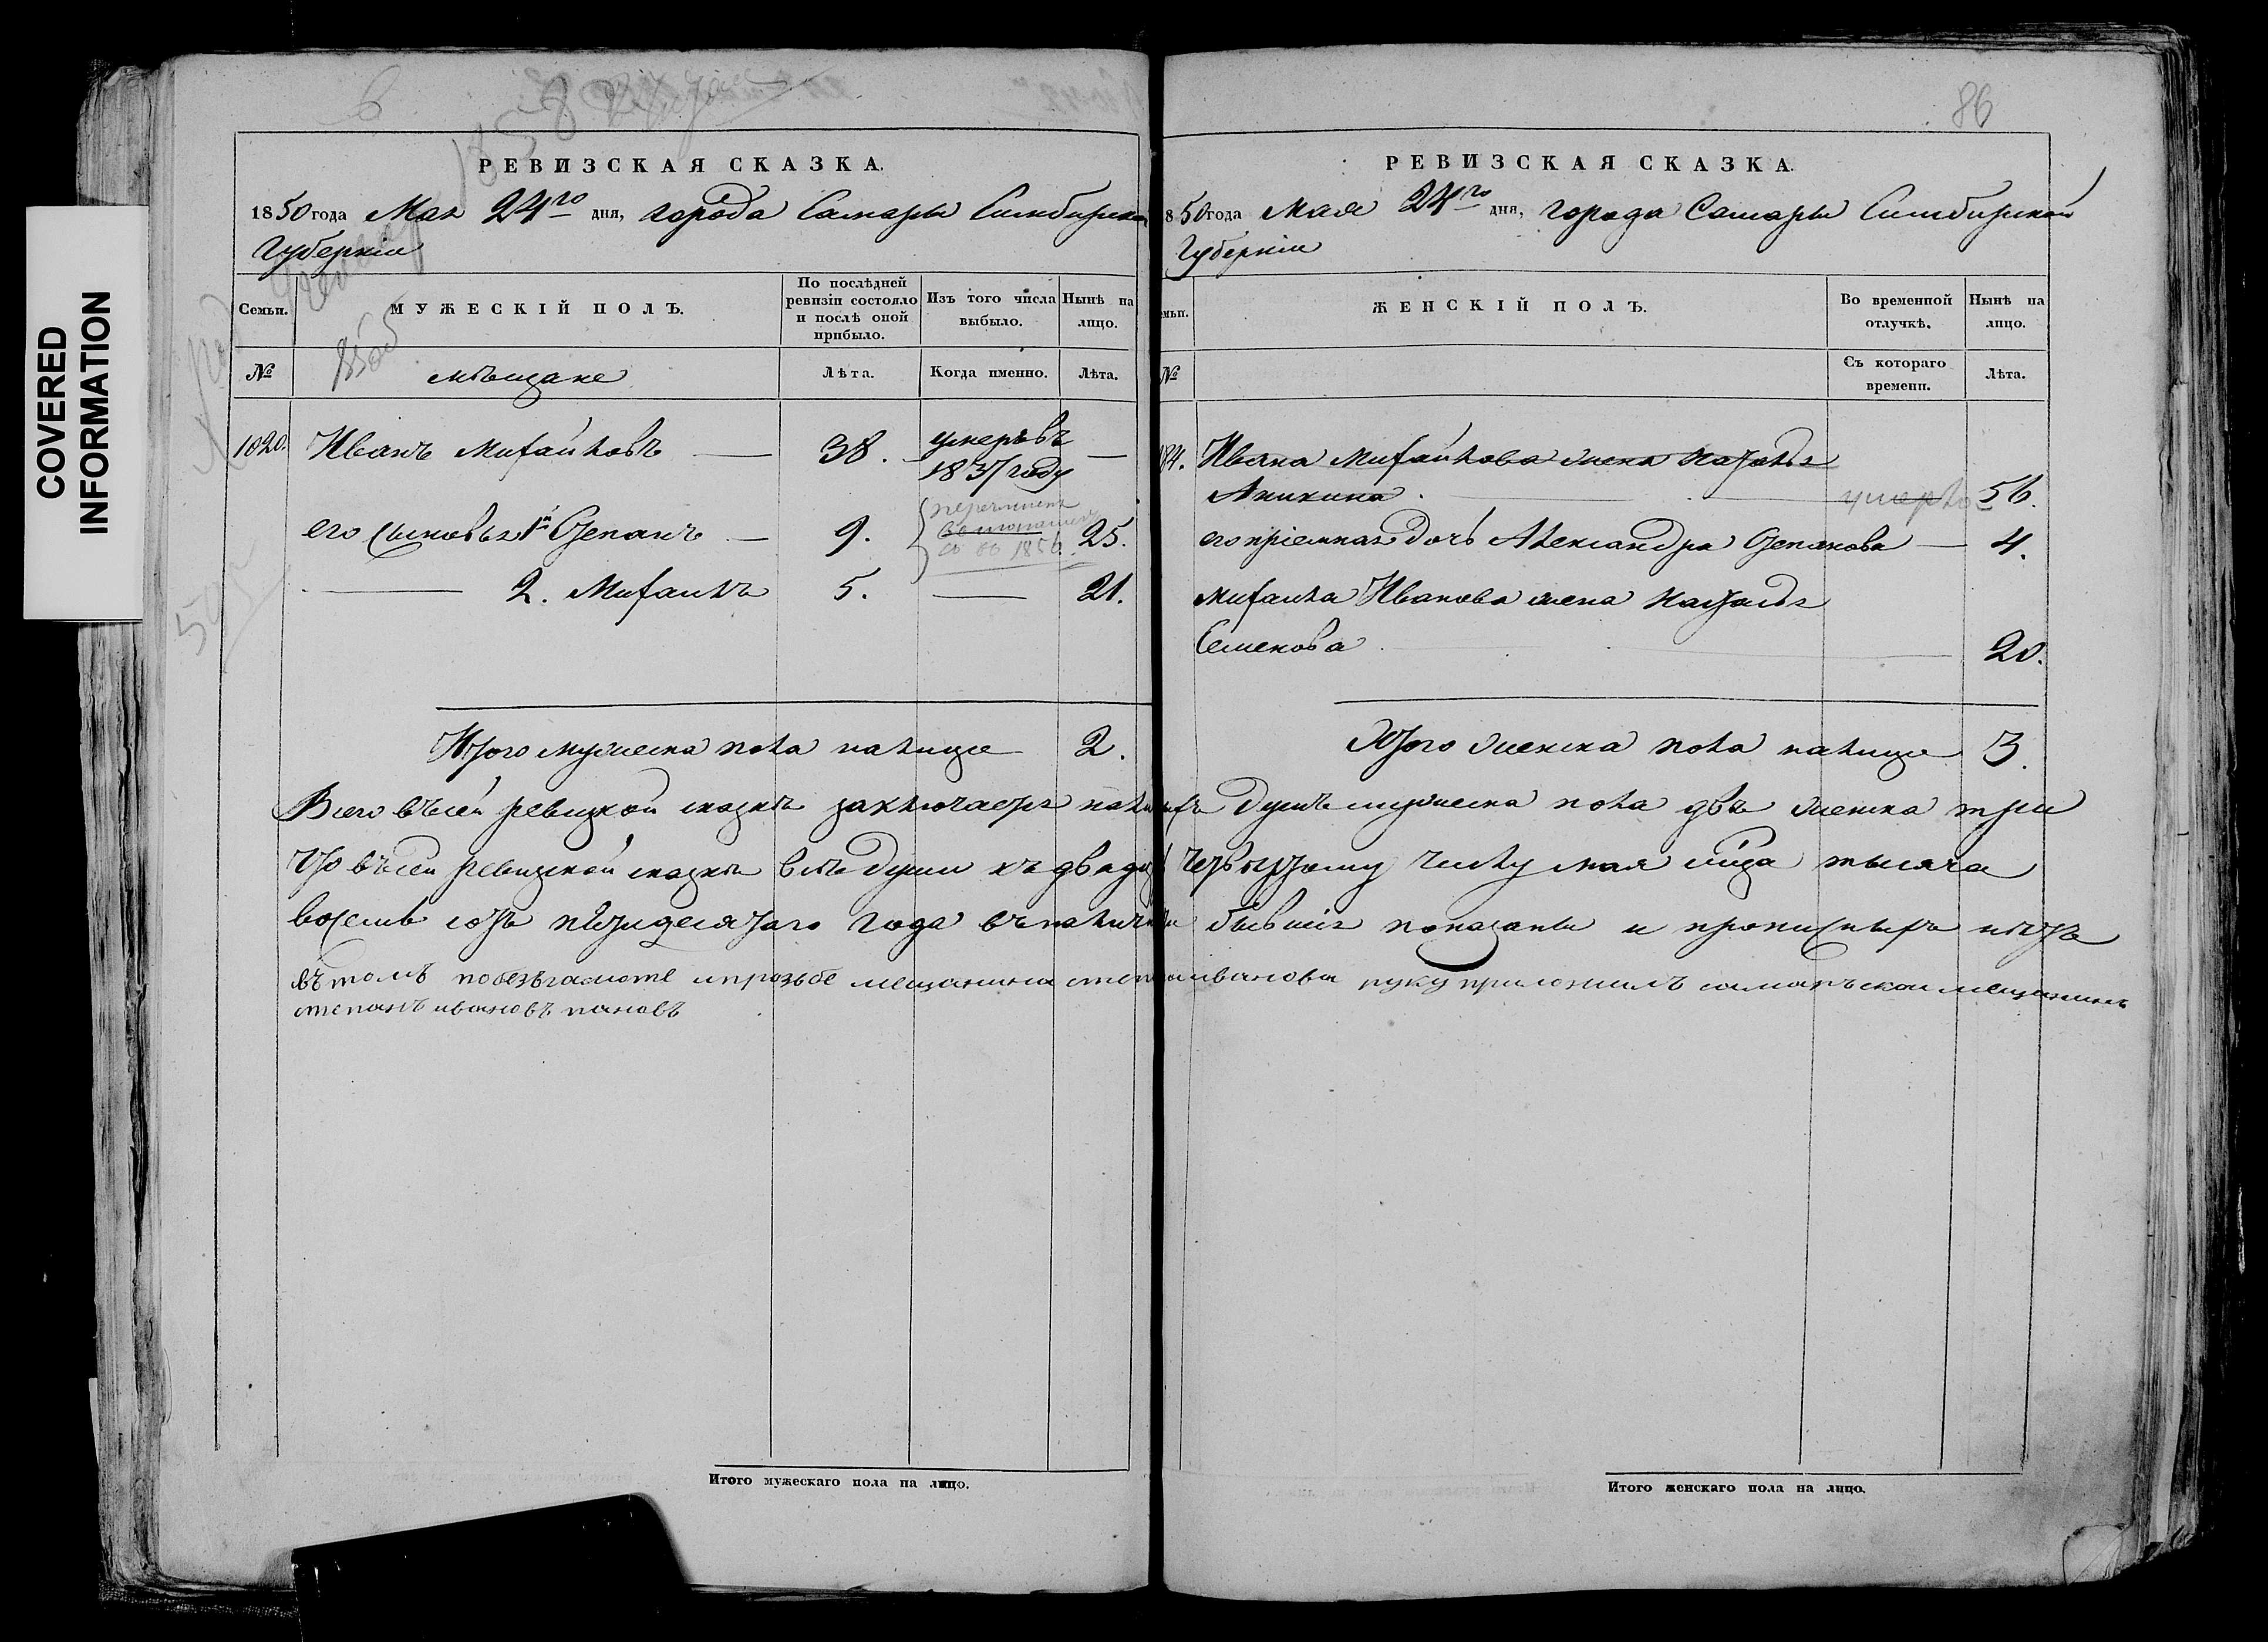 COVERED
INFORMATION
6
86
РЕВИЗСКАЯ СКАЗКА.
1850 года Мая 24го дня, города Самары Симбирской
Губернiи
Семьи.
МУЖЕСКIЙ ПОЛЪ.
По послѣдней ревизiи состояло и послѣ оной прибыло.
Изъ того числа выбыло.
Нынѣ на лицо.
№
мѣщане
Лѣта.
Когда именно.
Лѣта.
1020. Иванъ Михайловъ — 38. умеръ въ —
1837 году
его сыновья 1й Степанъ — 9. 25.
2. Михаилъ 5. — 21.
Итого мужеска пола налице 2.
РЕВИЗСКАЯ СКАЗКА.
850 года Мая 24го дня, города Самары Симбирской
Губернiи
ЖЕНСКIЙ ПОЛЪ.
Во временной отлучкѣ.
Нынѣ на лицо.
№
Съ котораго времени.
Лѣта.
Ивана Михайлова жена Наталья
Аникина умерла 56.
его прiемная дочь Александра Степанова — 4.
Михаила Иванова жена Наталья
Семенова 20.
Итого женска пола налице 3.
Всего въ сей ревизкой сказкѣ заключается душъ мужеска пола двѣ женска три
Что въ сей ревизской сказкѣ всѣ души къ четвертому числу мая мца тысяча
восемь сотъ пятидесятаго года бывшiя показаны и прописныхъ нѣтъ
въ томъ побезъграмоте ипрозьбе мещанина иванова руку приложилъ мещанинъ
степанъ ивановъ пановъ
Итого мужескаго пола на лицо.
Итого женскаго пола на лицо.